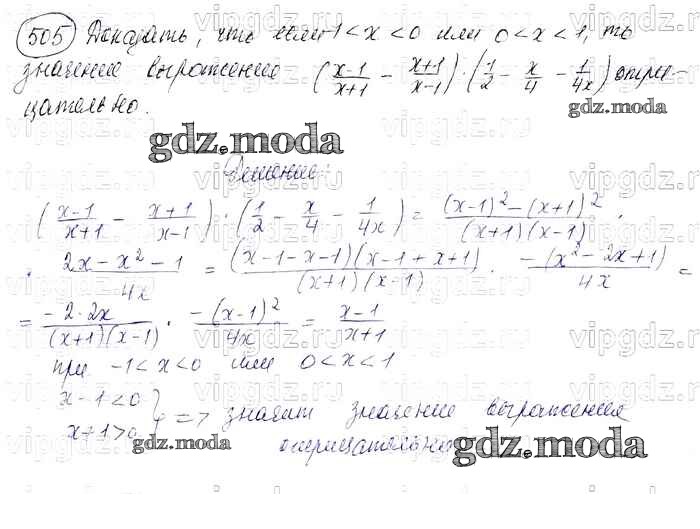 505 Доказать, что если -1 < x < 0 или 0 < x < 1, то
значение выражения (x-1/x+1 - x+1/x-1) : (1/2 - x/4 - 1/4x) отри-
цательно.
gdz.moda
gdz.moda
Решение:
(x-1/x+1 - x+1/x-1) · (1/2 - x/4 - 1/4x) = (x-1)² - (x+1)²/(x+1)(x-1) ·
· 2x - x² - 1/4x = (x-1-x-1)(x-1+x+1)/(x+1)(x-1) · -(x² - 2x + 1)/4x =
= -2·2x/(x+1)(x-1) · -(x-1)²/4x = x-1/x+1
при -1 < x < 0 или 0 < x < 1
x-1 < 0
x+1 > 0 } => значит значение выражения
отрицательно
gdz.moda
gdz.moda
vipgdz.ru